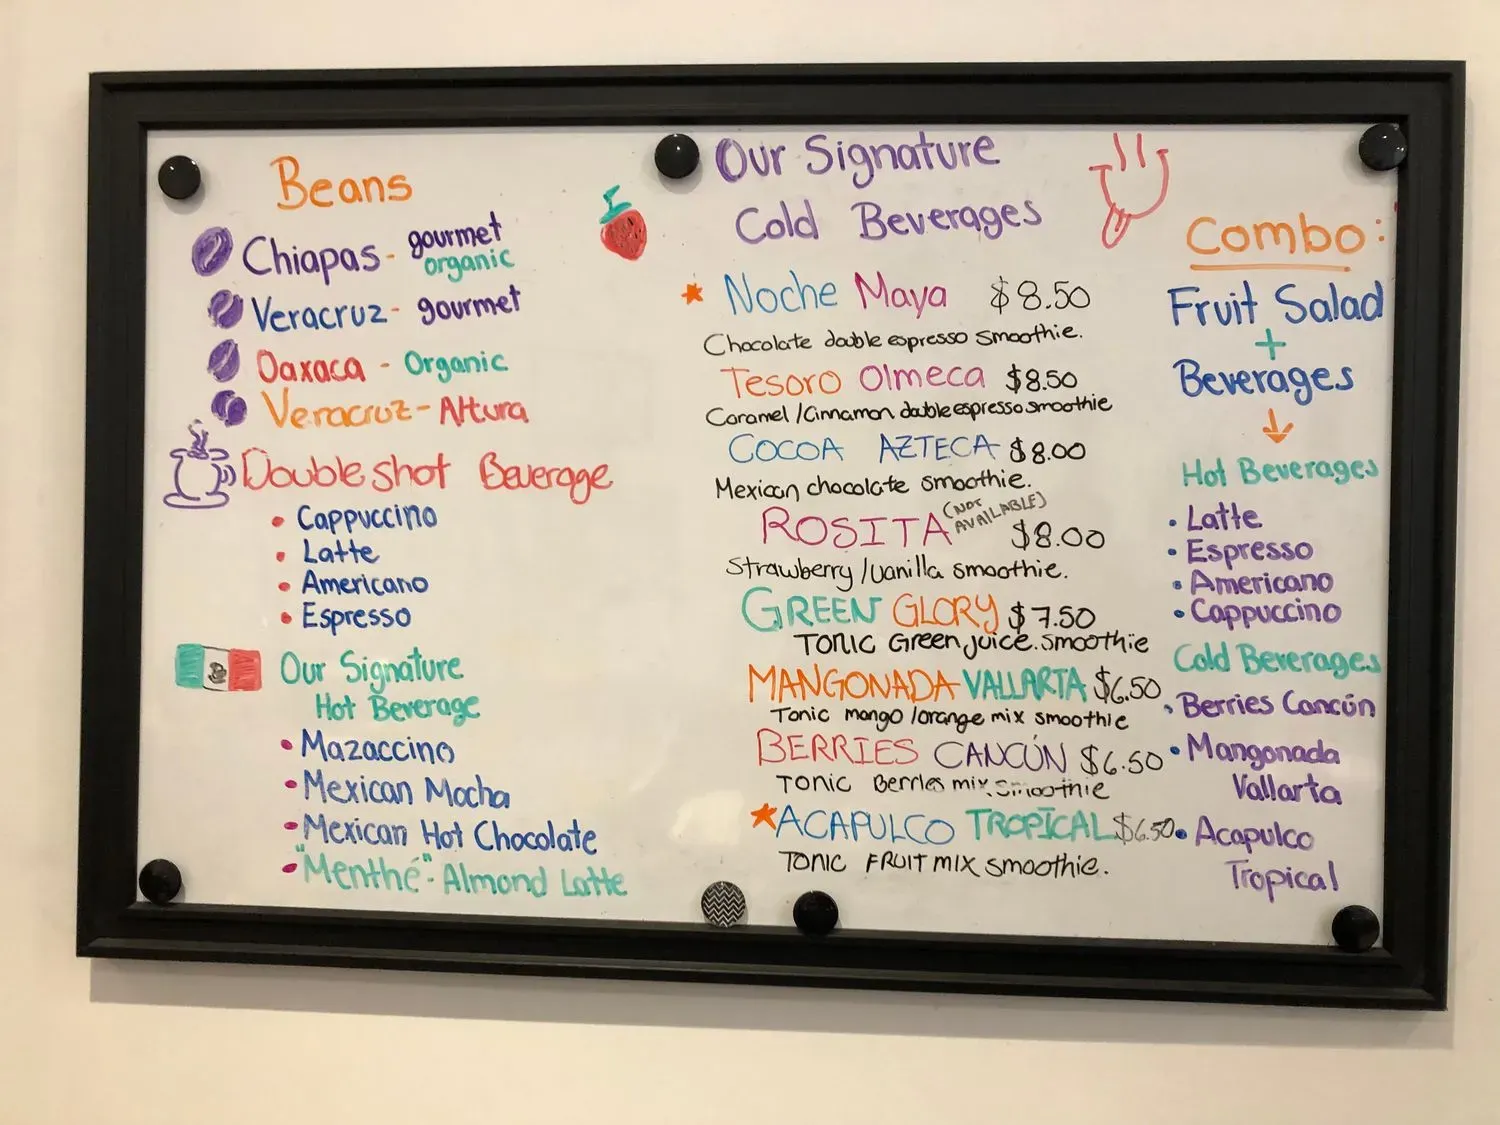 Beans
Chiapas - gourmet
organic
Veracruz - gourmet
Oaxaca - Organic
Veracruz - Altura
Double shot Beverage
• Cappuccino
• Latte
• Americano
• Espresso
Our Signature
Hot Beverage
• Mazaccino
• Mexican Mocha
• Mexican Hot Chocolate
• "Menthé" - Almond Latte
Our Signature
Cold Beverages
Noche Maya $8.50
Chocolate double espresso smoothie.
Tesoro Olmeca $8.50
Caramel/Cinnamon double espresso smoothie
COCOA AZTECA $8.00
Mexican chocolate smoothie.
ROSITA (NOT AVAILABLE) $8.00
Strawberry/vanilla smoothie.
GREEN GLORY $7.50
TONIC Green juice. smoothie
MANGONADA VALLARTA $6.50
Tonic mango/orange mix smoothie
BERRIES CANCÚN $6.50
TONIC Berries mix smoothie
ACAPULCO TROPICAL $6.50
TONIC FRUIT MIX smoothie.
Combo:
Fruit Salad
+
Beverages
Hot Beverages
• Latte
• Espresso
• Americano
• Cappuccino
Cold Beverages
• Berries Cancún
• Mangonada
Vallarta
• Acapulco
Tropical